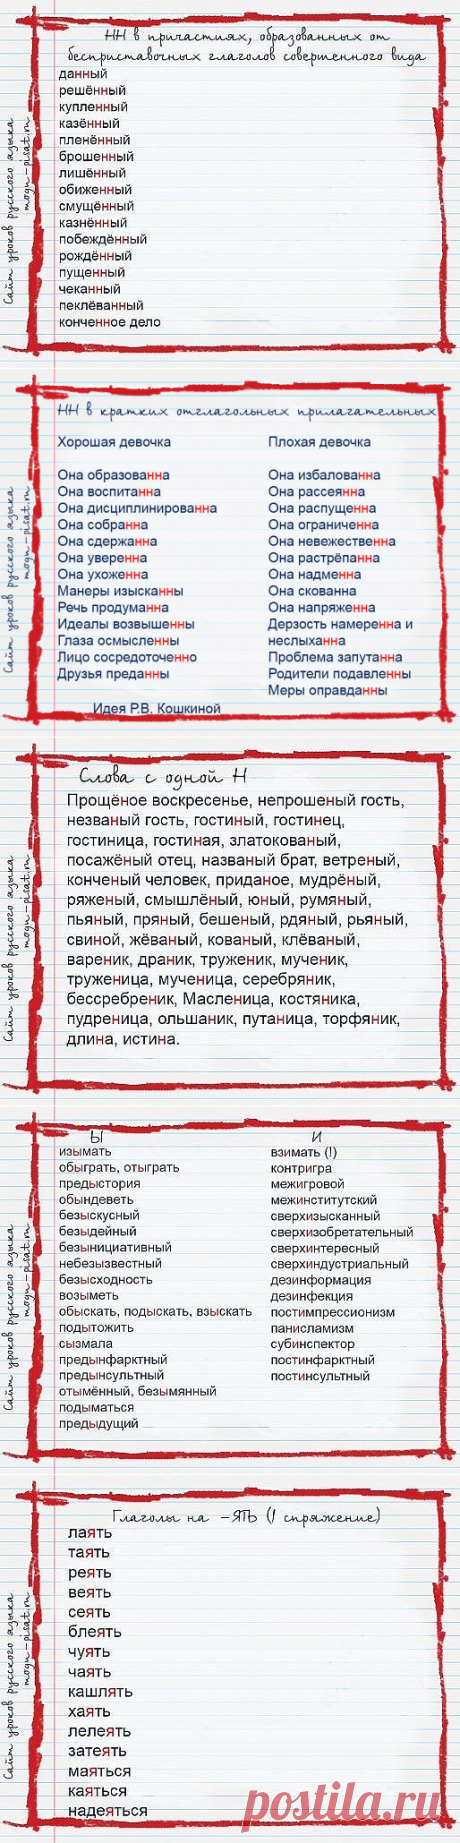 НН в причастиях, образованных от
бесприставочных глаголов совершенного вида
данный
решённый
купленный
казённый
пленённый
брошенный
лишённый
обиженный
смущённый
казнённый
побеждённый
рождённый
пущенный
чеканный
пеклёванный
конченное дело
Сайт уроков русского языка
mogu-pisat.ru
НН в кратких отглагольных прилагательных
Хорошая девочка
Она образованна
Она воспитанна
Она дисциплинированна
Она собранна
Она сдержанна
Она уверенна
Она ухоженна
Манеры изысканны
Речь продуманна
Идеалы возвышенны
Глаза осмысленны
Лицо сосредоточенно
Друзья преданны
Идея Р.В. Кошкиной
Плохая девочка
Она избалованна
Она рассеянна
Она распущенна
Она ограниченна
Она невежественна
Она растрёпанна
Она надменна
Она скованна
Она напряженна
Дерзость намеренна и
неслыханна
Проблема запутанна
Родители подавленны
Меры оправданны
Сайт уроков русского языка
mogu-pisat.ru
Слова с одной Н
Прощёное воскресенье, непрошеный гость,
незваный гость, гостиный, гостинец,
гостиница, гостиная, златокованый,
посажёный отец, названый брат, ветреный,
конченый человек, приданое, мудрёный,
ряженый, смышлёный, юный, румяный,
пьяный, пряный, бешеный, рдяный, рьяный,
свиной, жёваный, кованый, клёваный,
вареник, драник, труженик, мученик,
труженица, мученица, серебряник,
бессребреник, Масленица, костяника,
пудреница, ольшаник, путаница, торфяник,
длина, истина.
Сайт уроков русского языка
mogu-pisat.ru
Ы
изымать
обыграть, отыграть
предыстория
обындеветь
безыскусный
безыдейный
безынициативный
небезызвестный
безысходность
возыметь
обыскать, подыскать, взыскать
подытожить
сызмала
предынфарктный
предынсультный
отымённый, безымянный
подыматься
предыдущий
И
взимать (!)
контригра
межигровой
межинститутский
сверхизысканный
сверхизобретательный
сверхинтересный
сверхиндустриальный
дезинформация
дезинфекция
постимпрессионизм
панисламизм
субинспектор
постинфарктный
постинсультный
Сайт уроков русского языка
mogu-pisat.ru
Глаголы на -ЯТЬ (I спряжение)
лаять
таять
реять
веять
сеять
блеять
чуять
чаять
кашлять
хаять
лелеять
затеять
маяться
каяться
надеяться
Сайт уроков русского языка
mogu-pisat.ru
postila.ru